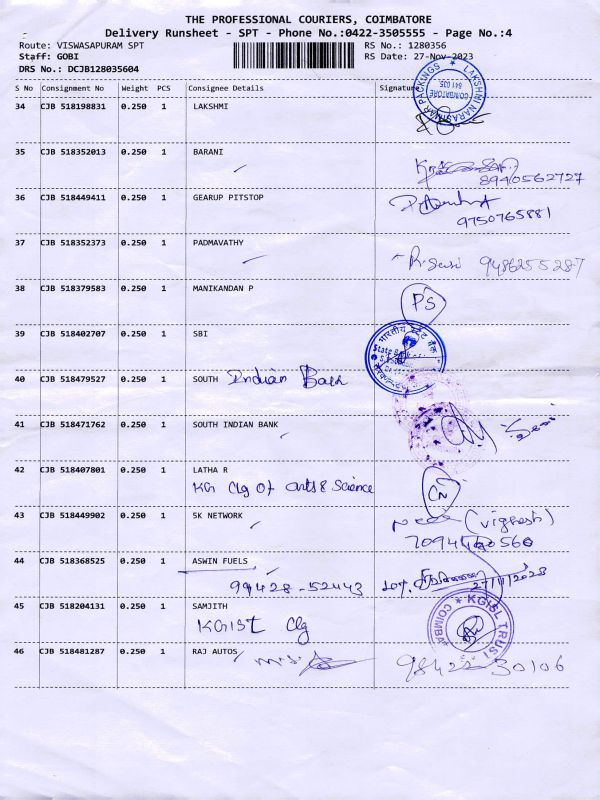 THE PROFESSIONAL COURIERS, COIMBATORE
Delivery Runsheet - SPT - Phone No.:0422-3505555 - Page No.:4
Route: VISWASAPURAM SPT RS No.: 1280356
Staff: GOBI RS Date: 27-Nov-2023
DRS No.: DCJB128035604
S No Consignment No Weight PCS Consignee Details Signature
LAKSHMI NARASIMAR PACKINGS
COIMBATORE
641 035.
34 CJB 518198831 0.250 1 LAKSHMI
35 CJB 518352013 0.250 1 BARANI
8940562727
36 CJB 518449411 0.250 1 GEARUP PITSTOP
9750765881
37 CJB 518352373 0.250 1 PADMAVATHY
R. Sasi 9486255287
38 CJB 518379583 0.250 1 MANIKANDAN P
PS
39 CJB 518402707 0.250 1 SBI
भारतीय स्टेट बैंक
State B
40 CJB 518479527 0.250 1 SOUTH Indian Bank
41 CJB 518471762 0.250 1 SOUTH INDIAN BANK
42 CJB 518407801 0.250 1 LATHA R
KG Clg Of arts & Science
CN
43 CJB 518449902 0.250 1 SK NETWORK
(Vignesh)
7094460560
44 CJB 518368525 0.250 1 ASWIN FUELS
99428-52443 27/11/2023
45 CJB 518204131 0.250 1 SAMJITH
KGISL Clg
KGISL TRUST
COIMBA
46 CJB 518481287 0.250 1 RAJ AUTOS
98422 30106